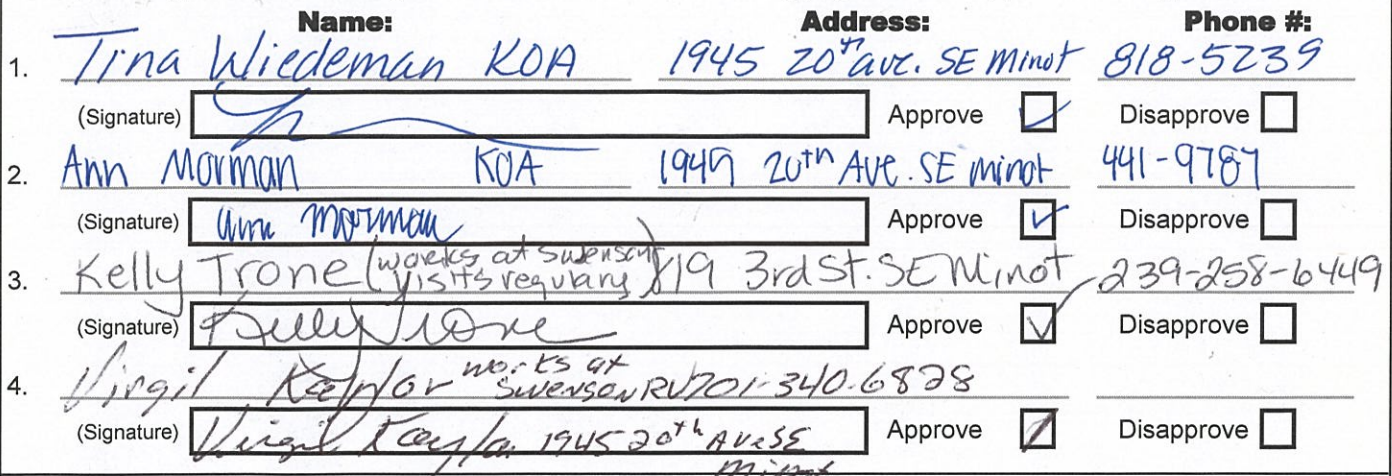 Name: Address: Phone #:
1. Tina Wiedeman KOA 1945 20th ave. SE Minot 818-5239
(Signature) Approve Disapprove
2. Ann Morman KOA 1945 20th Ave. SE minot 441-9787
(Signature) Ann Morman Approve Disapprove
3. Kelly Trone (works at Swenson visits regulary) 819 3rd St. SE Minot 239-258-6449
(Signature) Kelly Trone Approve Disapprove
4. Virgil works at Swenson RV 701-340-6828
(Signature) Virgil 1945 20th Ave SE Approve Disapprove
Minot